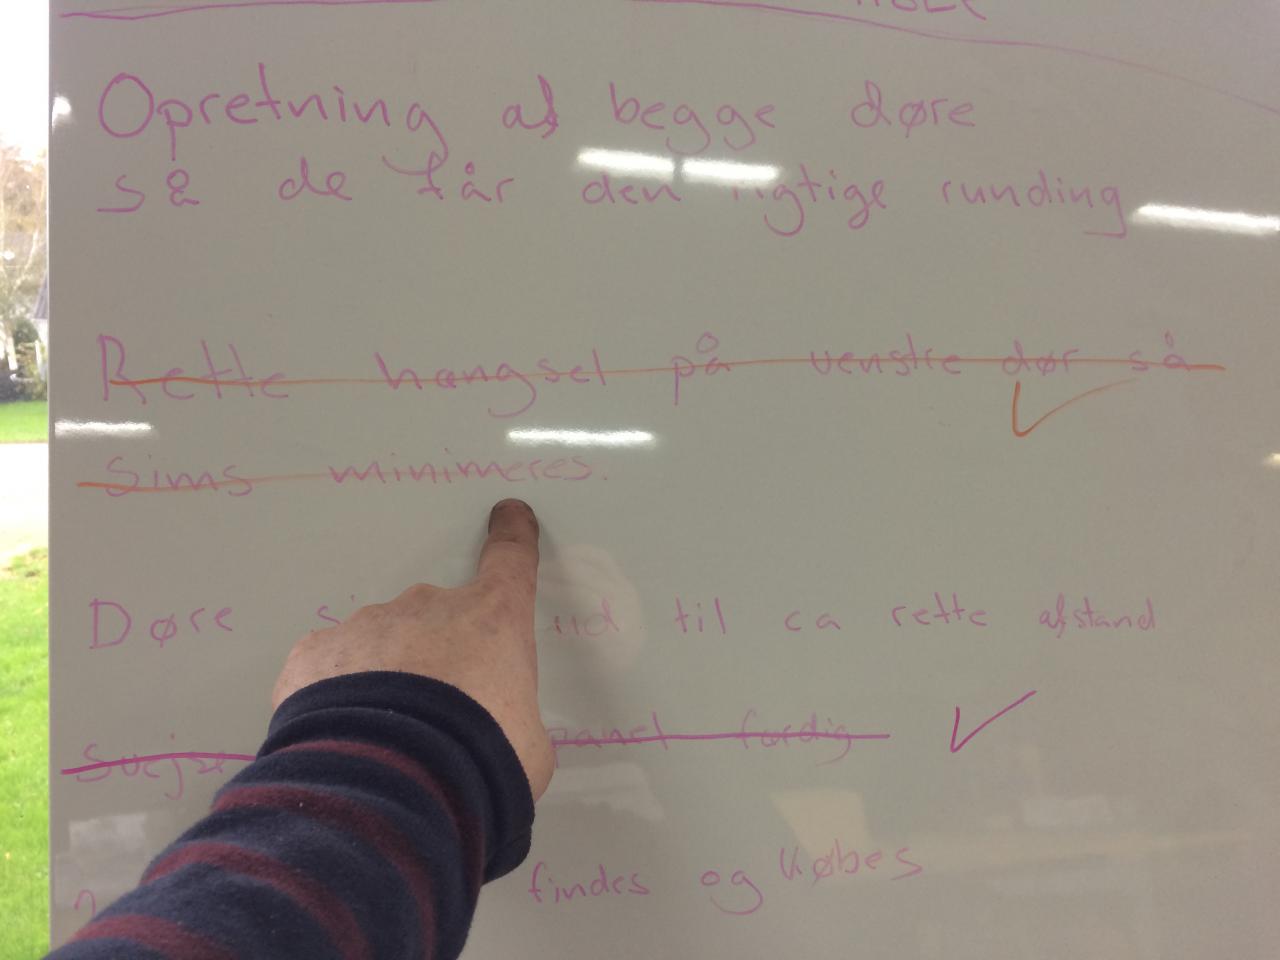 Opretning af begge døre
så de får den rigtige runding
Rette hængsel på venstre dør så
Sims minimeres.
Døre ud til ca rette afstand
Svejse panel færdig
findes og købes